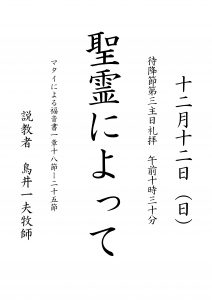 十二月十二日（日）
待降節第三主日礼拝　午前十時三十分
聖霊によって
マタイによる福音書一章十八節－二十五節
説教者　鳥井一夫牧師